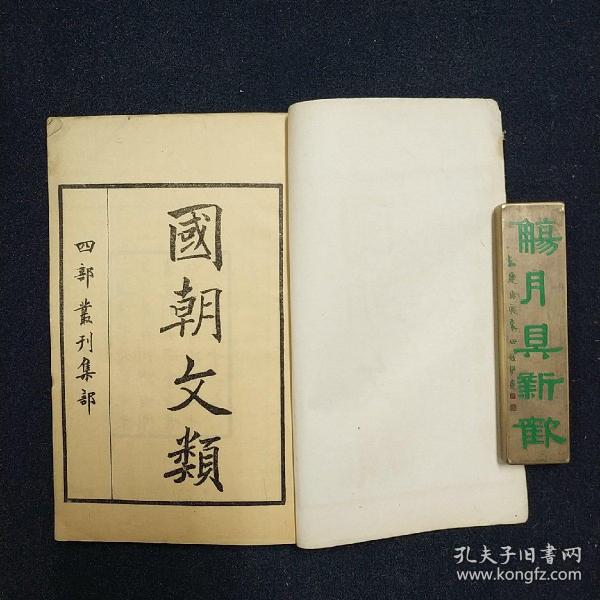 國朝文類
四部叢刊集部
觴月具新歡
孔夫子旧书网
www.kongfz.com